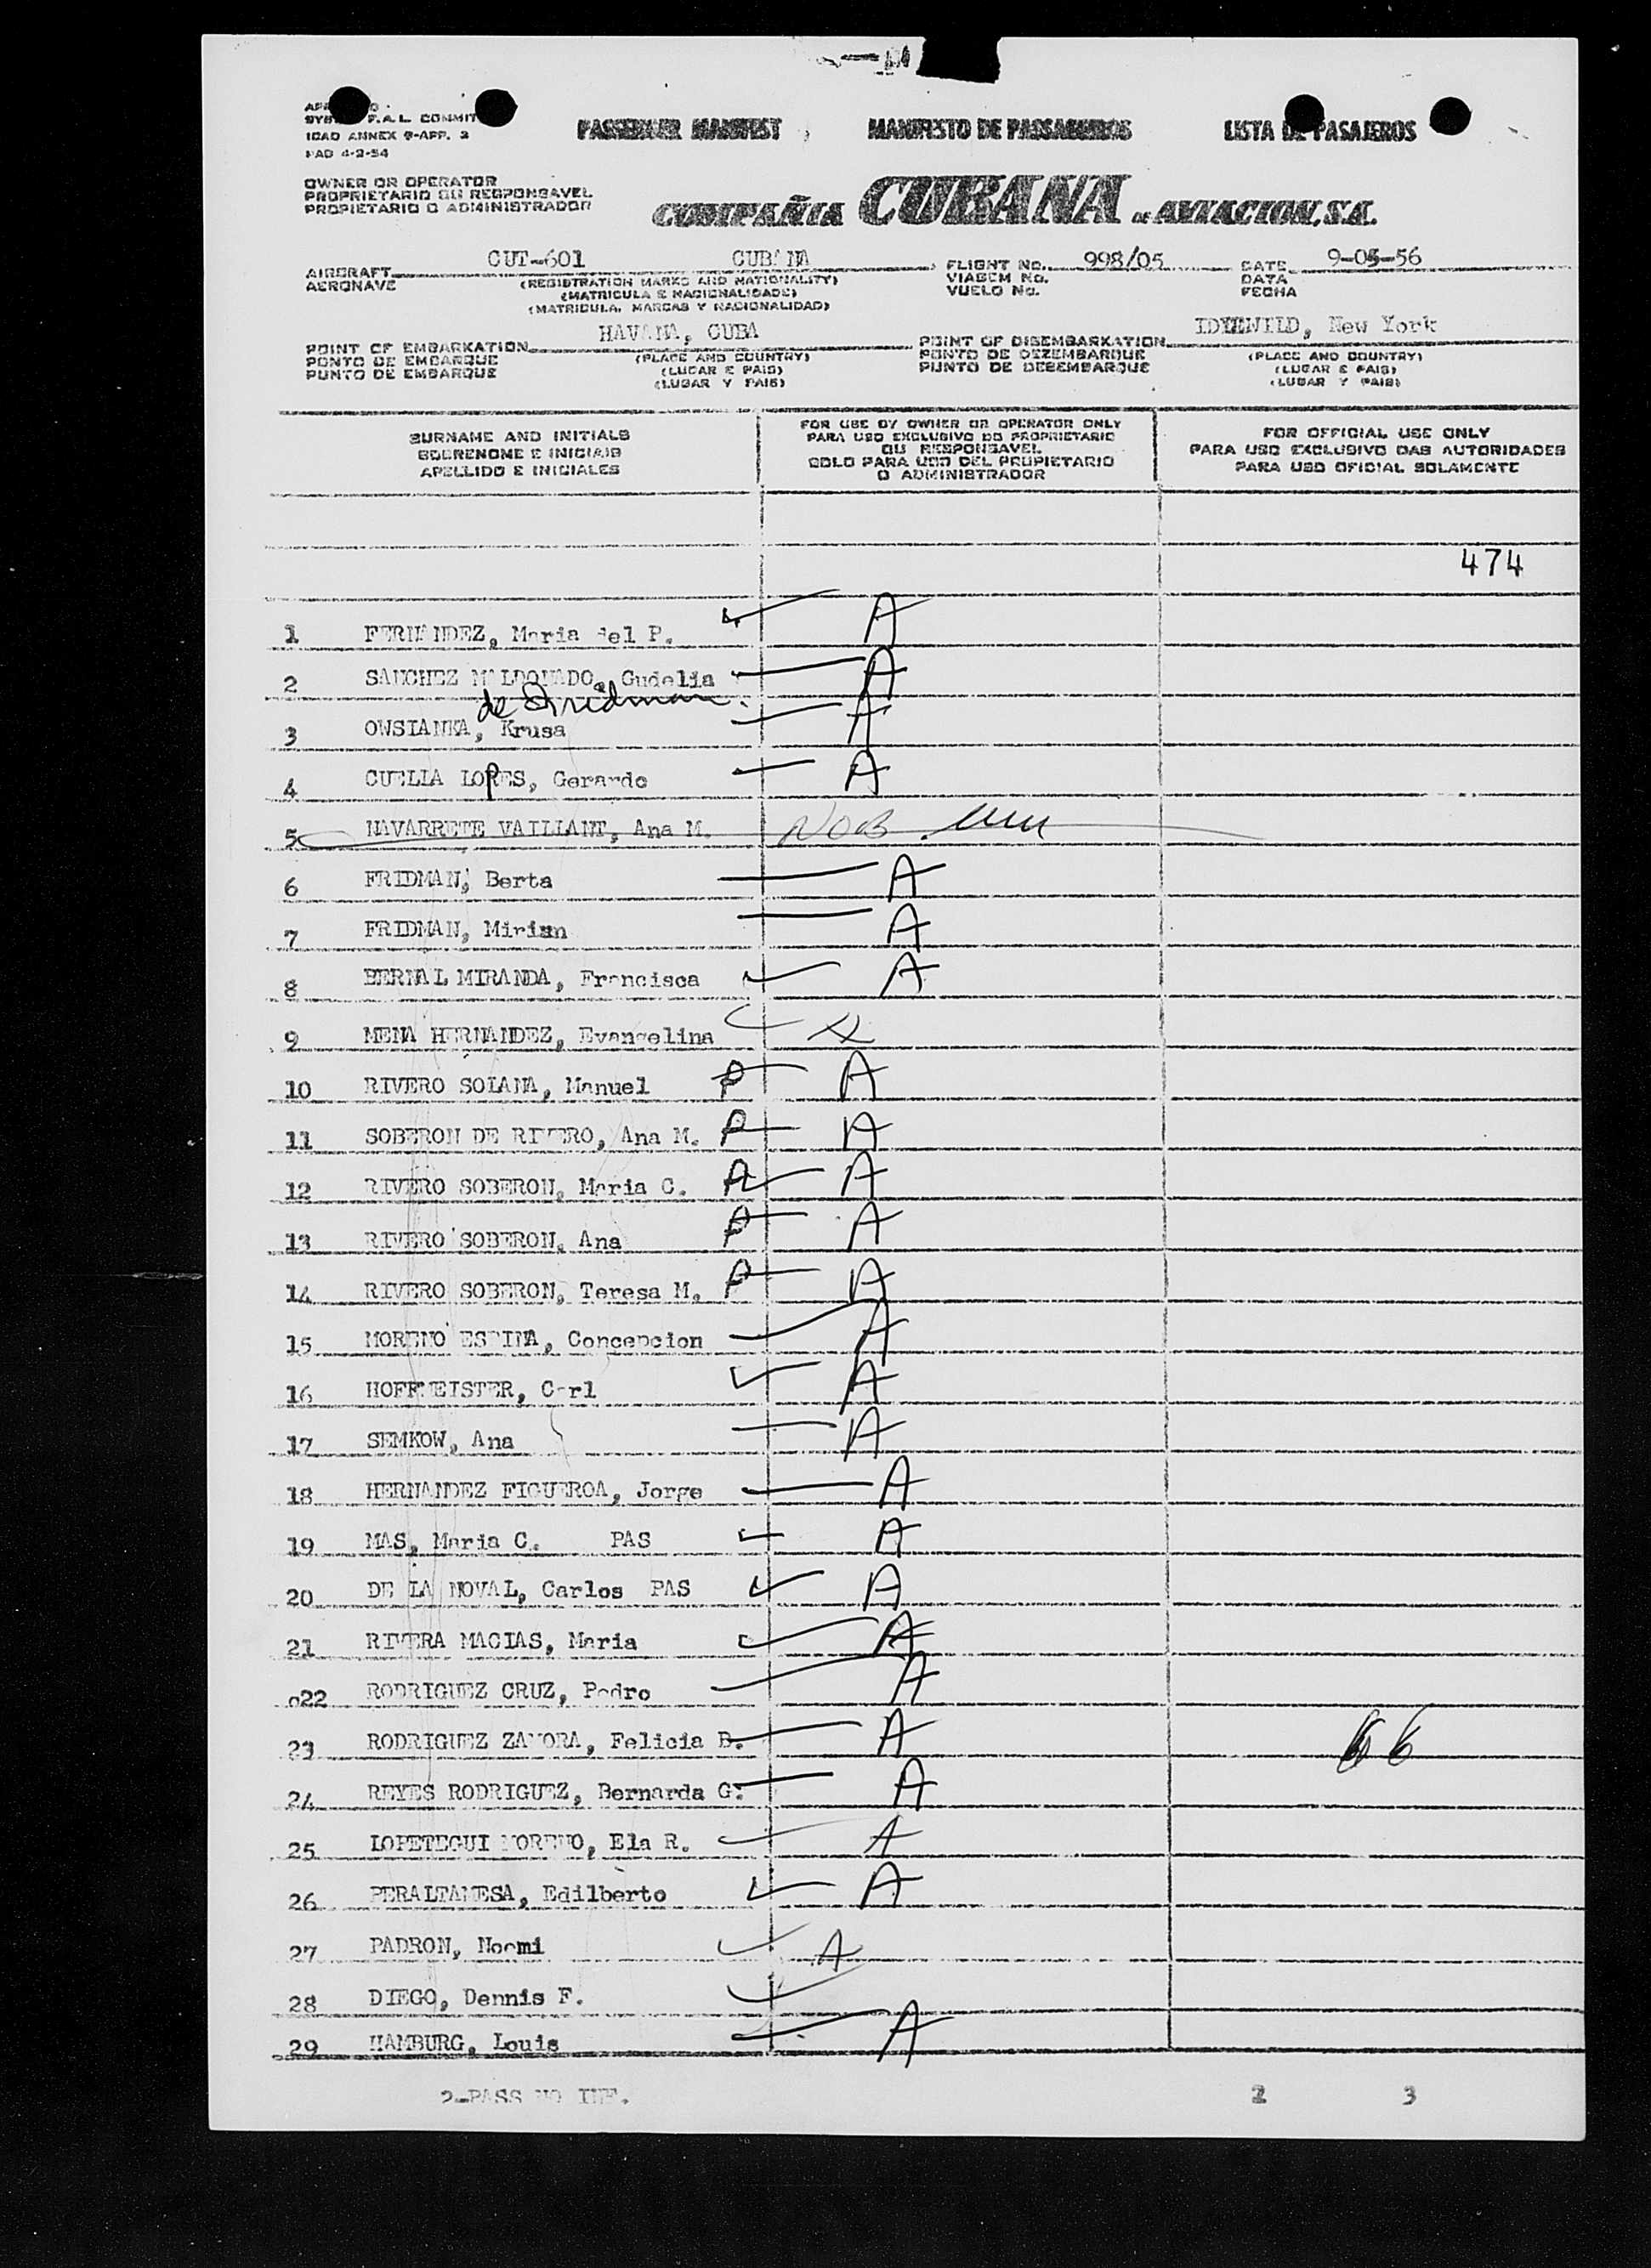 F.A.L. COMMIT
ICAO ANNEX 9-APP. 3
PAD 4-2-54
PASSENGER MANIFEST MANIFESTO DE PASSAGEIROS LISTA DE PASAJEROS
OWNER OR OPERATOR
PROPRIETARIO OU RESPONSAVEL
PROPIETARIO O ADMINISTRADOR
COMPAÑIA CUBANA DE AVIACION, S.A.
AIRCRAFT CUT-601 CUBANA FLIGHT No. 998/05 DATE 9-05-56
AERONAVE (REGISTRATION MARKS AND NATIONALITY) VIAGEM No. DATA
(MATRICULA E NACIONALIDADE) VUELO No. FECHA
(MATRICULA, MARCAS Y NACIONALIDAD)
POINT OF EMBARKATION HAVANA, CUBA POINT OF DISEMBARKATION IDLEWILD, New York
PONTO DE EMBARQUE (PLACE AND COUNTRY) PONTO DE DEZEMBARQUE (PLACE AND COUNTRY)
PUNTO DE EMBARQUE (LUGAR E PAIS) PUNTO DE DESEMBARQUE (LUGAR E PAIS)
(LUGAR Y PAIS) (LUGAR Y PAIS)
SURNAME AND INITIALS
SOBRENOME E INICIAIS
APELLIDO E INICIALES
FOR USE BY OWNER OR OPERATOR ONLY
PARA USO EXCLUSIVO DO PROPRIETARIO
OU RESPONSAVEL
SOLO PARA USO DEL PROPIETARIO
O ADMINISTRADOR
FOR OFFICIAL USE ONLY
PARA USO EXCLUSIVO DAS AUTORIDADES
PARA USO OFICIAL SOLAMENTE
474
1 FERNANDEZ, Maria del P. A
2 SANCHEZ MALDONADO, Gudelia A
de Fridman.
3 OWSIANKA, Krusa A
4 CUELLA LOPES, Gerardo A
5 NAVARRETE VAILLANT, Ana M. NOB
6 FRIDMAN, Berta A
7 FRIDMAN, Mirian A
8 BERNAL MIRANDA, Francisca A
9 MENA HERNANDEZ, Evangelina
10 RIVERO SOLANA, Manuel P A
11 SOBERON DE RIVERO, Ana M. P A
12 RIVERO SOBERON, Maria C. A
13 RIVERO SOBERON, Ana P A
14 RIVERO SOBERON, Teresa M. P A
15 MORENO ESPINA, Concepcion A
16 HOFFMEISTER, Carl A
17 SEMKOW, Ana A
18 HERNANDEZ FIGUEROA, Jorge A
19 MAS, Maria C. PAS A
20 DE LA NOVAL, Carlos PAS A
21 RIVERA MACIAS, Maria A
22 RODRIGUEZ CRUZ, Pedro A
23 RODRIGUEZ ZAMORA, Felicia B. A 66
24 REYES RODRIGUEZ, Bernarda G. A
25 LOPETEGUI MORENO, Ela R. A
26 PERALTAMESA, Edilberto A
27 PADRON, Noemi A
28 DIEGO, Dennis F.
29 HAMBURG, Louis A
2-PASS NO INF. 2 3